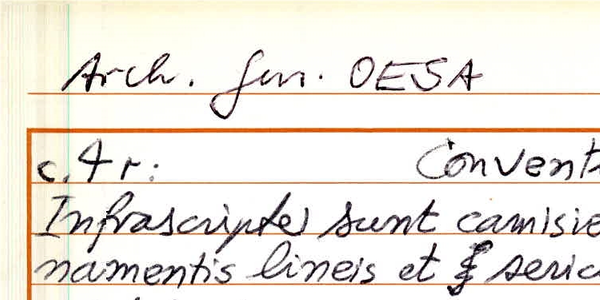 Arch. Gen. OESA
c. 4 r: Convent
Infrascripte sunt camisie
namentis lineis et seric